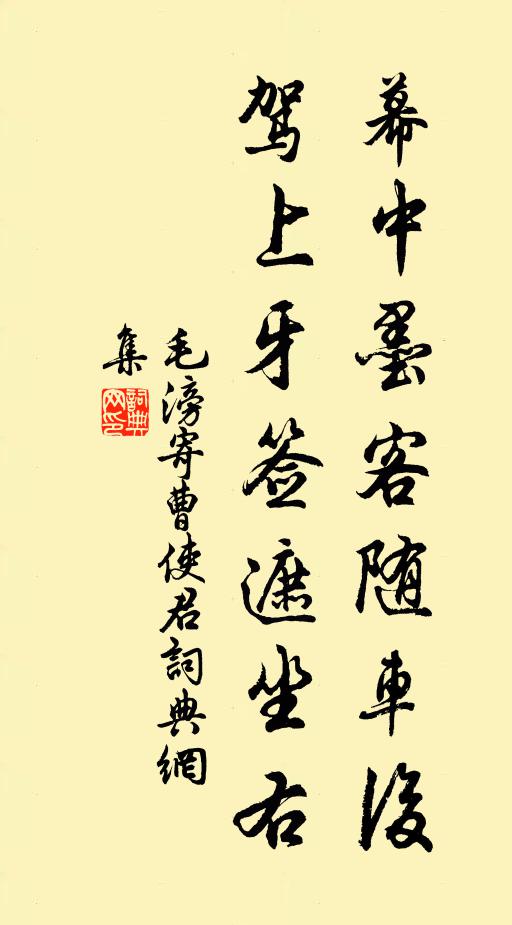 幕中墨客随車後
駕上牙签遮坐右
毛滂寄曹使君詞典網
集
詞典
网印